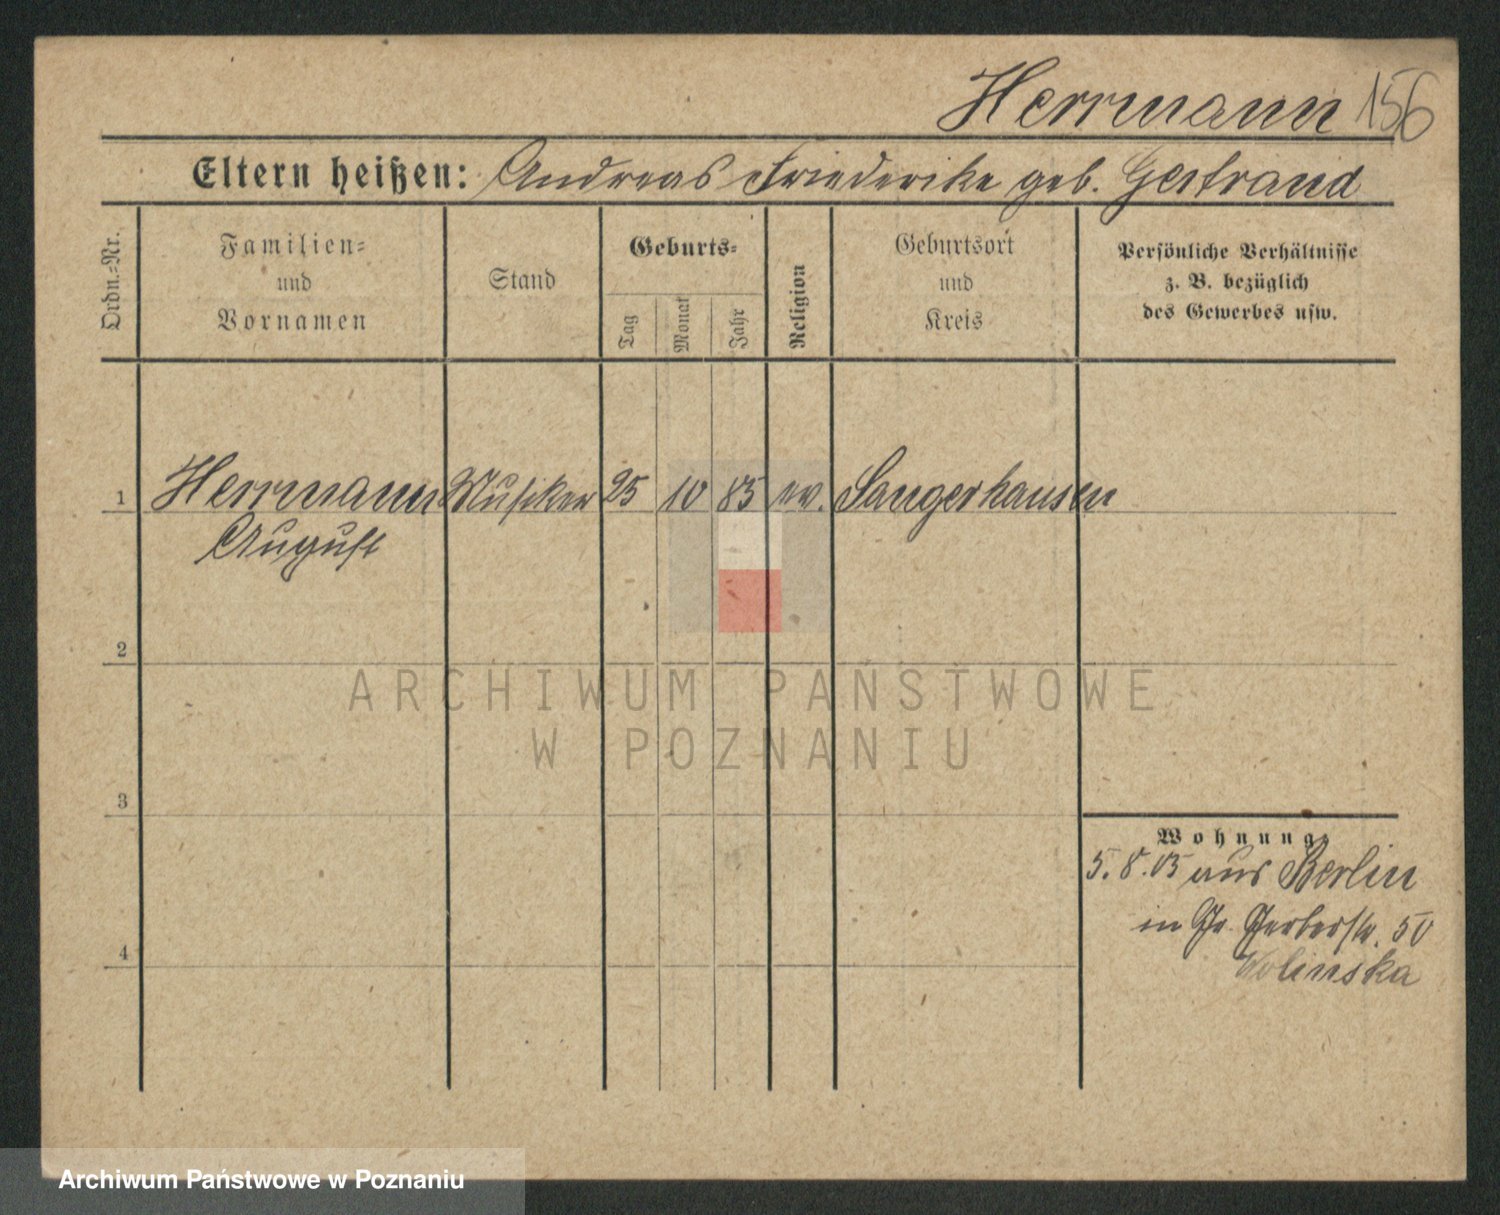 Herrmann 156
Eltern heißen: Andreas Friederike geb. Gertraud
Ordn.-Nr.
Familien-
und
Vornamen
Stand
Geburts-
Tag
Monat
Jahr
Religion
Geburtsort
und
Kreis
Persönliche Verhältnisse
z. B. bezüglich
des Gewerbes usw.
1 Herrmann Musiker 25 10 85 ev. Sangerhausen
August
2
ARCHIWUM PAŃSTWOWE
W POZNANIU
3
Wohnung
5. 8. 05 aus Berlin
in Gr. Gerberstr. 50
Wolinska
4
Archiwum Państwowe w Poznaniu